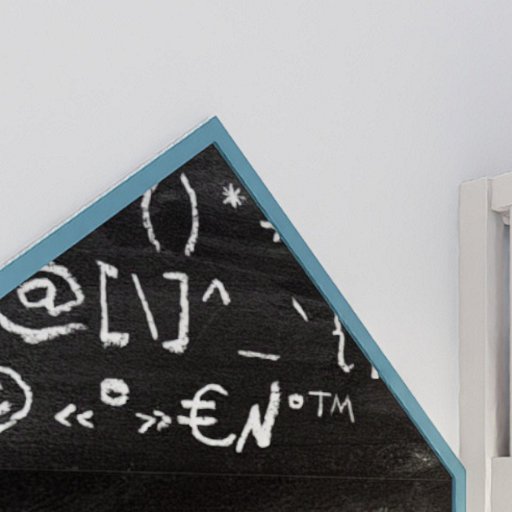 ( ) *
@ [ \ ] ^ _ ` {
« ° » € N ° ™